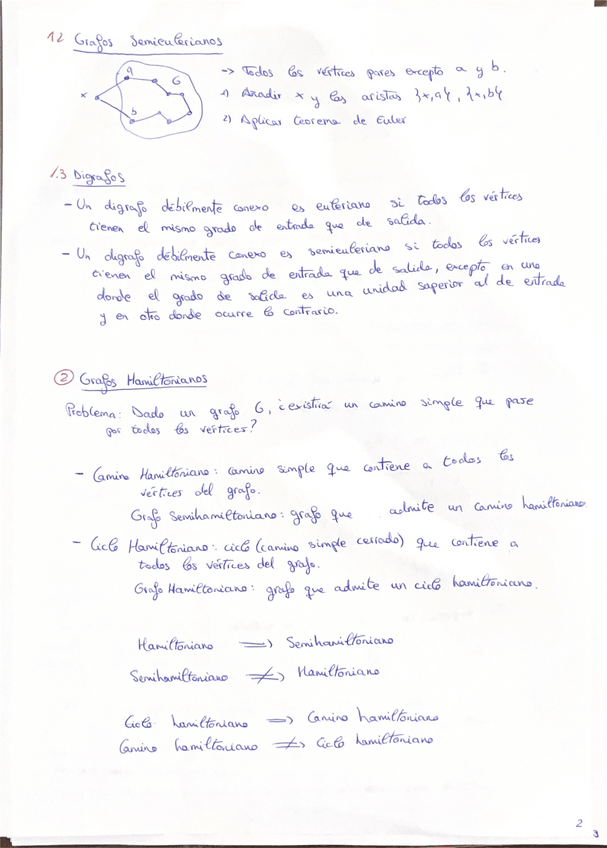 1.2 Grafos Semieulerianos
a
G
x
b
-> Todos los vértices pares excepto a y b.
1) Añadir x y las aristas {x,a}, {x,b}
2) Aplicar teorema de Euler
1.3 Digrafos
- Un digrafo débilmente conexo es euleriano si todos los vértices
tienen el mismo grado de entrada que de salida.
- Un digrafo débilmente conexo es semieuleriano si todos los vértices
tienen el mismo grado de entrada que de salida, excepto en uno
donde el grado de salida es una unidad superior al de entrada
y en otro donde ocurre lo contrario.
2 Grafos Hamiltonianos
Problema: Dado un grafo G, ¿existirá un camino simple que pase
por todos los vértices?
- Camino Hamiltoniano: camino simple que contiene a todos los
vértices del grafo.
Grafo Semihamiltoniano: grafo que admite un camino hamiltoniano
- Ciclo Hamiltoniano: ciclo (camino simple cerrado) que contiene a
todos los vértices del grafo.
Grafo Hamiltoniano: grafo que admite un ciclo hamiltoniano.
Hamiltoniano => Semihamiltoniano
Semihamiltoniano ≠> Hamiltoniano
Ciclo hamiltoniano => Camino hamiltoniano
Camino hamiltoniano ≠> Ciclo hamiltoniano
2
3